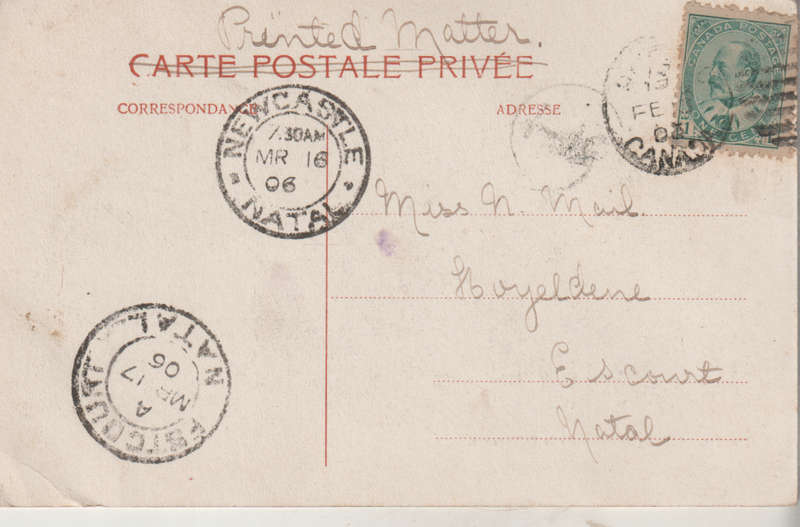 Printed Matter.
CARTE POSTALE PRIVÉE
CORRESPONDANCE
ADRESSE
CANADA POSTAGE
FE
CANADA
NEWCASTLE
7.30AM
MR 16
06
NATAL
Miss N. Mail.
Hoyeldene
Escourt
Natal
ESTCOURT
A
MR 17
06
NATAL